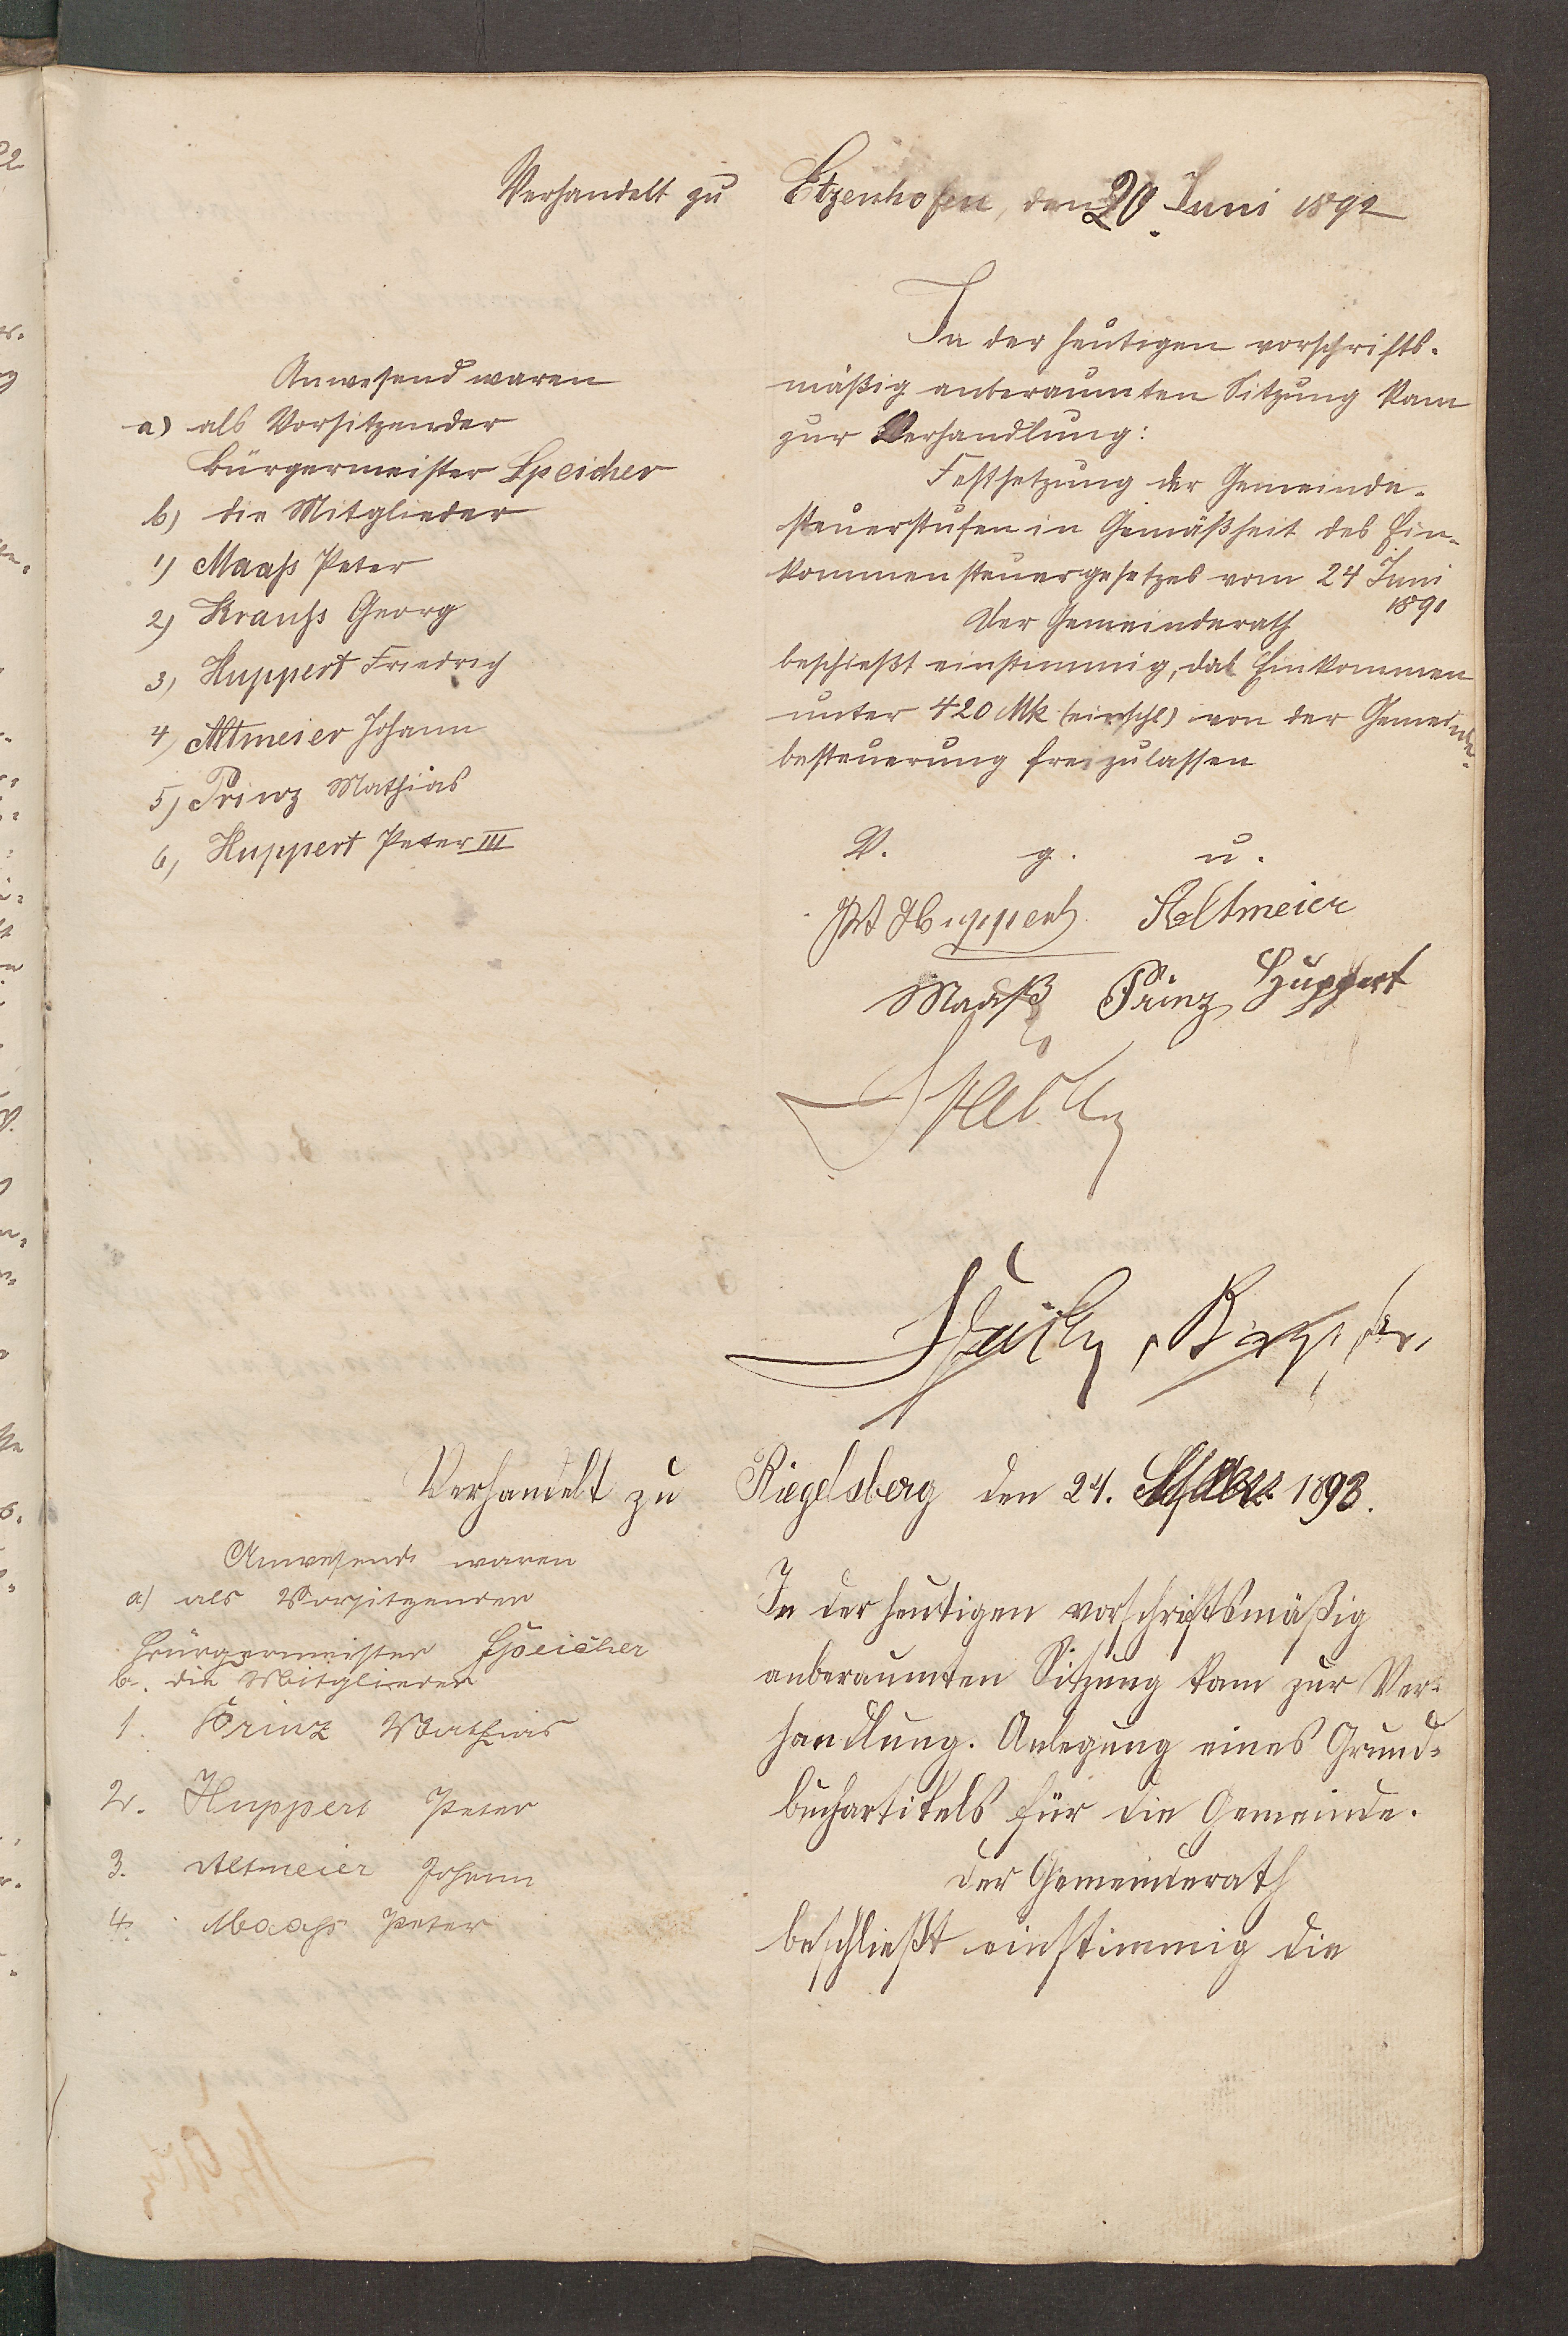 Verhandelt zu Etzenhofen, den 20. Juni 1892
Anwesend waren
a) als Vorsitzender
Bürgermeister Speicher
b) die Mitglieder
1) Maaß Peter
2) Krauß Georg
3) Huppert Friedrich
4) Altmeier Johann
5) Prinz Mathias
6) Huppert Peter III
In der heutigen vorschrifts-
mäßig anberaumten Sitzung kam
zur Verhandlung:
Festsetzung der Gemeinde-
steuerstufen in Gemäßheit des Ein-
kommensteuergesetzes vom 24 Juni
1891
Der Gemeinderath
beschießt einstimmig, das Einkommen
unter 420 Mk (einschl) von der Gemeinde-
besteuerung freizulassen
V. g. u.
Pet Huppert Altmeier
Maaß Prinz Huppert
Verhandelt zu Riegelsberg den 24. 1893.
Anwesend waren
a) als Vorsitzender
Bürgermeister Speicher
b. die Mitglieder
1. Prinz Mathias
2. Huppert Peter
3. Altmeier Johann
4. Maaß Peter
In der heutigen vorschriftsmäßig
anberaumten Sitzung kam zur Ver-
handlung. Anlegung eines Grund-
buchartikels für die Gemeinde.
Der Gemeinderath
beschließt einstimmig die